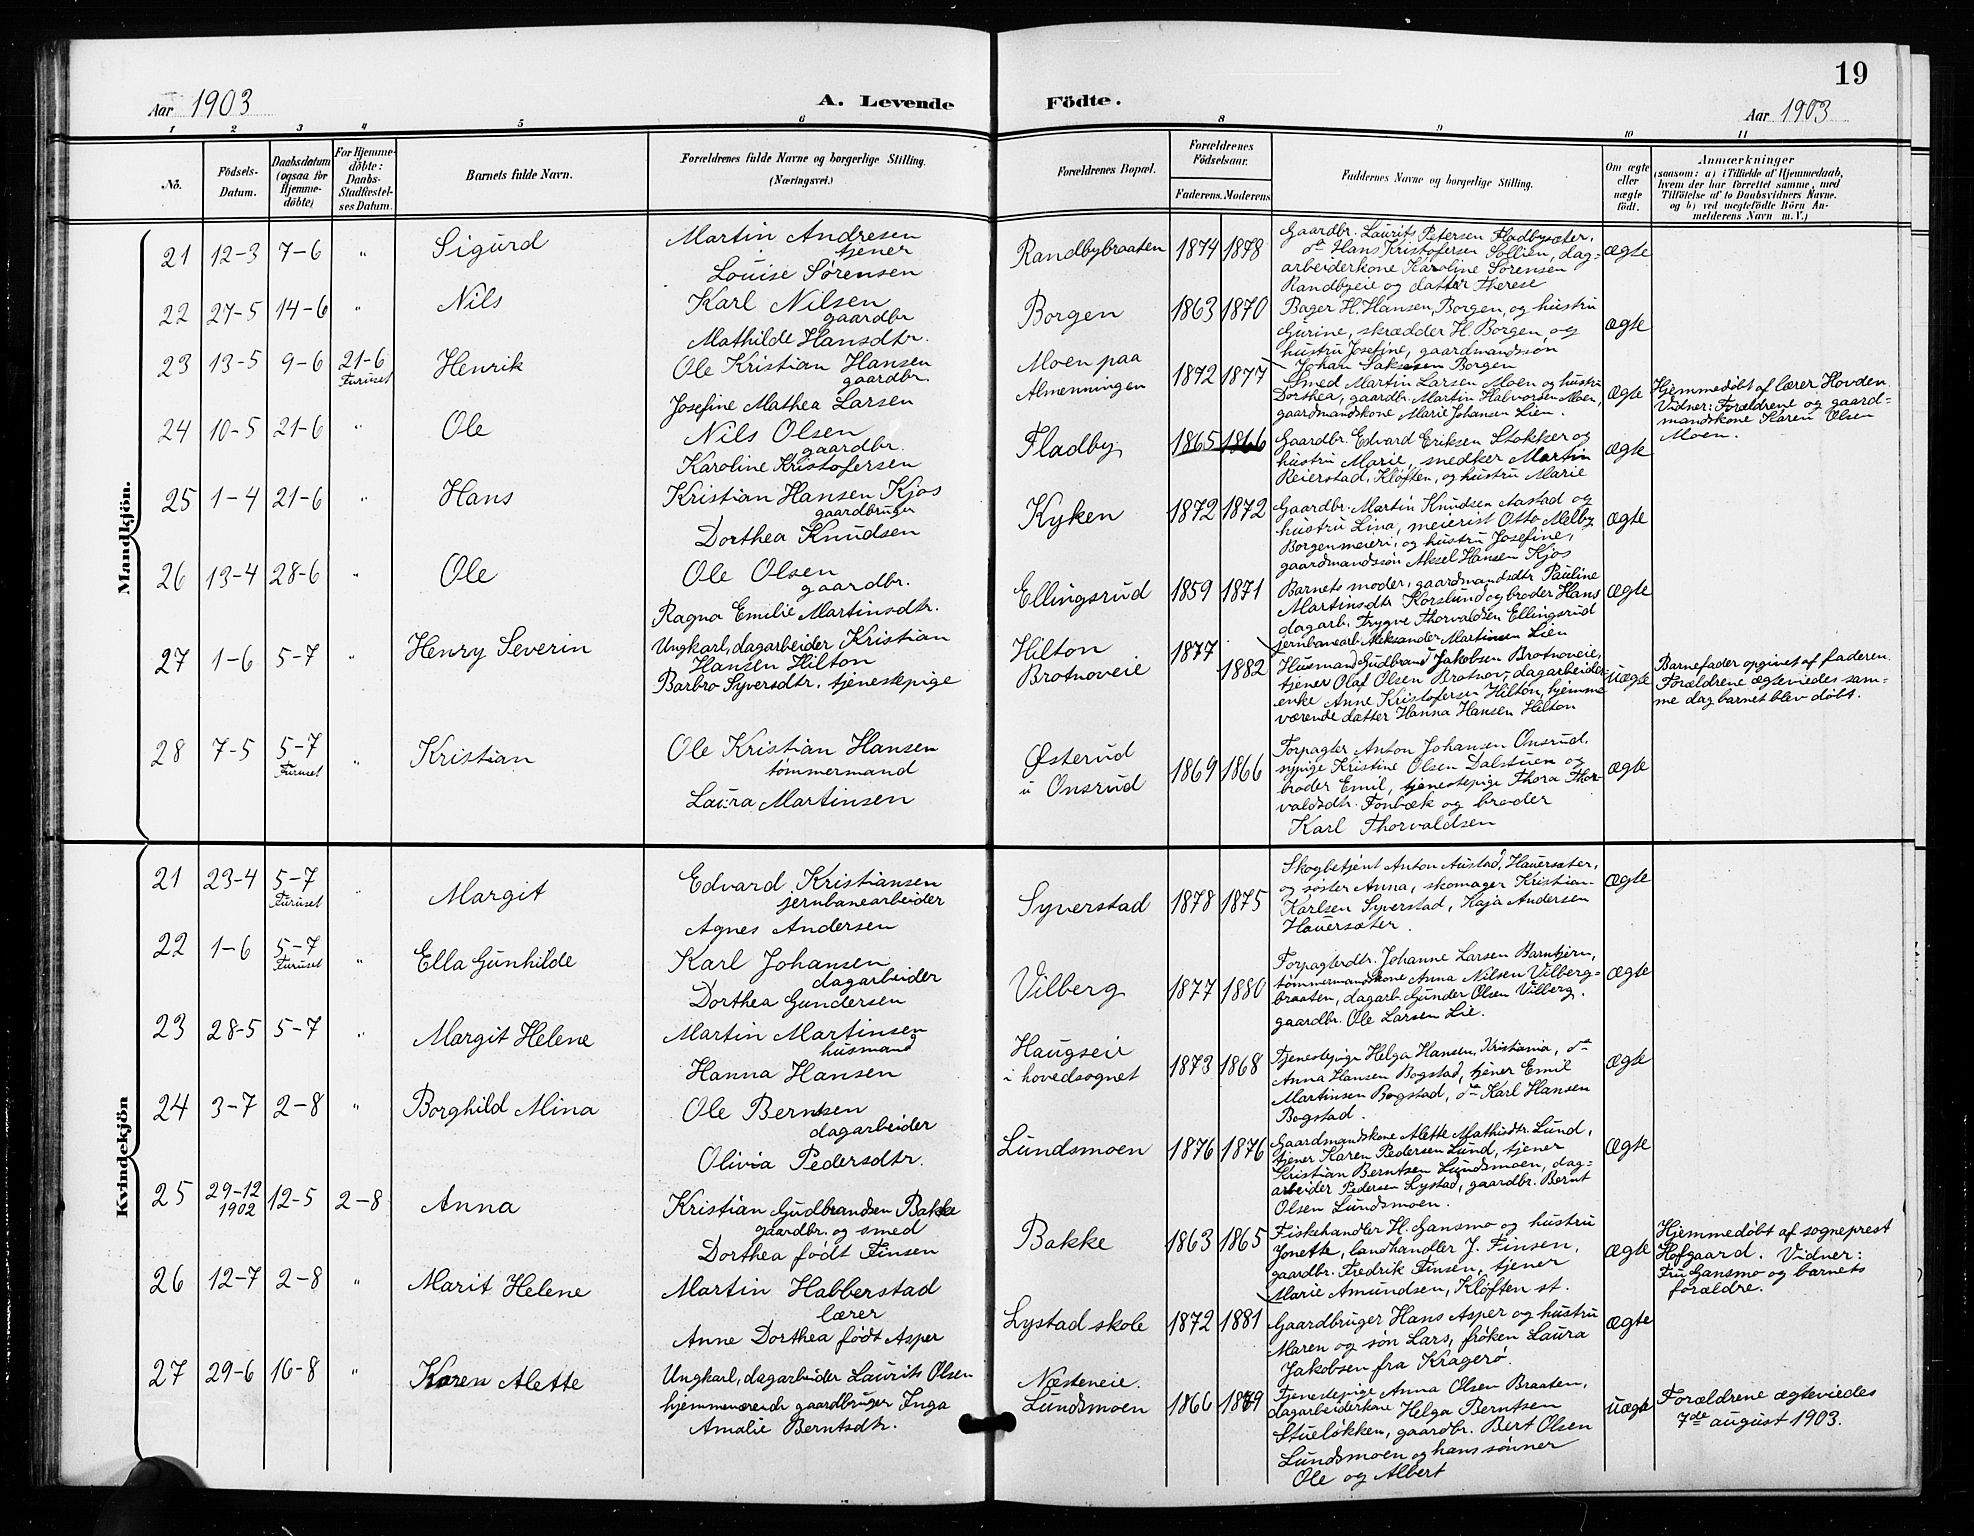 19
Aar 1903
A. Levende Födte.
Aar 1903
1 2 3 4 5 6 8 9 10 11
No.
Födsels-Datum.
Daabsdatum (ogsaa for Hjemme-döbte)
For Hjemme-döbte: Daabs-Stadfæstel-ses Datum.
Barnets fulde Navn.
Forældrenes fulde Navne og borgerlige Stilling.
(Næringsvei.)
Forældrenes Bopæl.
Forældrenes Födselsaar.
Faderens. Moderens.
Faddernes Navne og borgerlige Stilling.
Om ægte eller uægte födt.
Anmærkninger
(saasom: a) i Tilfælde af Hjemmedaab,
hvem der har forrettet samme, med
Tilföielse af to Daabsvidners Navne.
og b) ved uægtefödte Börn An-
melderens Navn m. V.)
Mandkjön.
21 12-3 7-6 " Sigurd
Martin Andresen
tjener
Louise Sørensen
Randbybraaten 1874 1878
Gaardbr. Laurits Petersen Fladbysæter,
do Hans Kristofersen Sollien, dag-
arbeiderkone Karoline Sørensen
Randbyeie og datter Therese
ægte
22 27-5 14-6 " Nils
Karl Nilsen
gaardbr
Mathilde Hansdtr.
Borgen 1863 1870
Bager H. Hansen, Borgen, og hustru
Gurine, skrædder H. Borgen og
hustru Josefine, gaardmandssøn
Johan Saksesen Borgen
ægte
23 13-5 9-6 21-6 Furuset Henrik
Ole Kristian Hansen
gaardbr.
Josefine Mathea Larsen
Moen paa
Almenningen 1872 1877
Smed Martin Larsen Moen og hustru
Dorthea, gaardbr. Martin Halvorsen Moen,
gaardmandskone Marie Johansen Lien.
ægte
Hjemmedøbt af lærer Hovden.
Vidner: Forældrene og gaard-
mandskone Karen Olsen
Moen.
24 10-5 21-6 " Ole
Nils Olsen
gaardbr.
Karoline Kristofersen
Fladby 1865 1866
Gaardbr. Edvard Eriksen Stokker og
hustru Marie, snedker Martin
Reierstad, Kløften, og hustru Marie
ægte
25 1-4 21-6 " Hans
Kristian Hansen Kjos
gaardbruger
Dorthea Knudsen
Kyken 1872 1872
Gaardbr. Martin Knudsen Aastad og
hustru Lina, meierist Otto Melby
Borgenmeieri, og hustru Josefine,
gaardmandssøn Aksel Hansen Kjos
ægte
26 13-4 28-6 " Ole
Ole Olsen
gaardbr.
Ragna Emilie Martinsdtr.
Ellingsrud 1859 1871
Barnets moder, gaardmandsdtr Pauline
Martinsdtr Korslund og broder Hans
dagarb. Trygve Thorvaldsen Ellingsrud
jernbanearb. Aleksander Martinsen Lien
ægte
27 1-6 5-7 " Henry Severin
Ungkarl, dagarbeider Kristian
Hansen Hilton
Barbro Syversdtr. tjenestepige
Hilton 1877
Brotnoveie 1882
Husmand Gudbrand Jakobsen Brotnoveie,
tjener Olaf Olsen Brotnov, dagarbeider-
enke Anne Kristofersen Hilton, hjemme
værende datter Hanna Hansen Hilton
uægte
Barnefader opgivet af faderen.
Forældrene ægteviedes sam-
me dag barnet blev døbt.
28 7-5 5-7 Furuset " Kristian
Ole Kristian Hansen
tømmermand
Laura Martinsen
Østerud
u Onsrud 1869 1866
Forpagter Anton Johansen Onsrud,
sypige Kristine Olsen Dalstuen og
broder Emil, tjenestepige Thora Thor-
valdsdtr. Fonbæk og broder
Karl Thorvaldsen
ægte
Kvindekjön
21 23-4 5-7 Furuset " Margit
Edvard Kristiansen
jernbanearbeider
Agnes Andersen
Syverstad 1878 1875
Skogbetjent Anton Austad, Hauersæter,
og søster Anna, skomager Kristian
Karlsen Syverstad, Kaja Andersen
Hauersæter.
ægte
22 1-6 5-7 Furuset " Ella Gunhilde
Karl Johansen
dagarbeider
Dorthea Gundersen
Vilberg 1877 1880
Forpagterdtr. Johanne Larsen Barnhjem,
tømmermandskone Anna Nilsen Vilberg-
braaten, dagarb. Gunder Olsen Vilberg.
gaardbr. Ole Larsen Lie.
ægte
23 28-5 5-7 " Margit Helene
Martin Martinsen
husmand
Hanna Hansen
Haugseie
i hovedsognet 1873 1868
Tjenestepige Helga Hansen, Kristiania, do
Anna Hansen Bogstad, tjener Emil
Martinsen Bogstad, do Karl Hansen
Bogstad.
ægte
24 3-7 2-8 " Borghild Mina
Ole Berntsen
dagarbeider
Olivia Pedersdtr.
Lundsmoen 1876 1876
Gaardmandskone Alette Mathisdtr. Lund,
tjener Karen Pedersen Lund, tjener
Kristian Berntsen Lundsmoen, dag-
arbeider Pedersen Lystad, gaardbr. Bernt
Olsen Lundsmoen.
ægte
25 29-12 1902 12-5 2-8 Anna
Kristian Gudbrandsen Bakke
gaardbr. og smed
Dorthea født Finsen
Bakke 1863 1865
Fiskehandler H. Gansmo og hustru
Jonette, landhandler J. Finsen,
gaardbr. Fredrik Finsen, tjener
Marie Amundsen, Kløften st.
ægte
Hjemmedøbt af sogneprest
Hofgaard. Vidner:
Fru Gansmo og barnets
forældre.
26 12-7 2-8 " Marit Helene
Martin Habberstad
lærer
Anne Dorthea født Asper
Lystad skole 1872 1881
Gaardbruger Hans Asper og hustru
Maren og søn Lars, frøken Laura
Jakobsen fra Kragerø.
ægte
27 29-6 16-8 " Karen Alette
Ungkarl, dagarbeider Laurits Olsen
hjemmeværende gaardbruger Inga
Amalie Berntsdtr.
Næsteneie.
Lundsmoen 1866 1879
Tjenestepige Anna Olsen Braaten,
dagarbeiderkone Helga Berntsen
Stueløkken, gaardbr. Bert Olsen
Lundsmoen og hans sønner
Ole og Albert
uægte
Forældrene ægteviedes
7de august 1903.